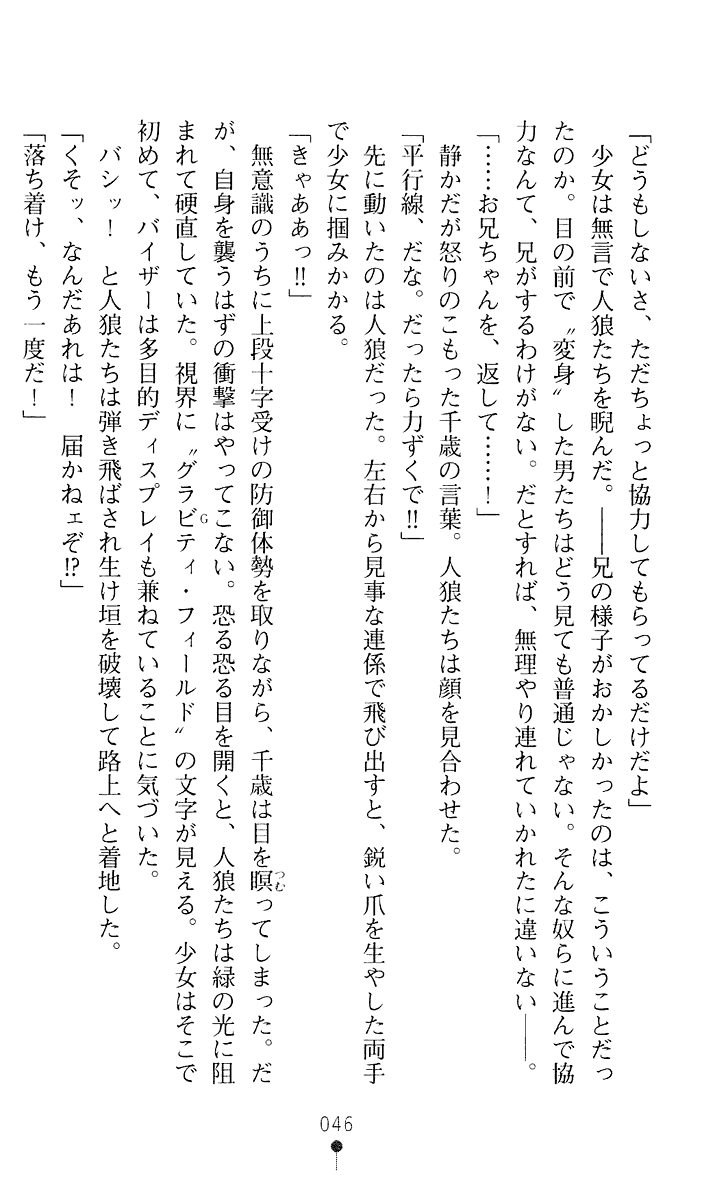 「どうもしないさ、ただちょっと協力してもらってるだけだよ」
　少女は無言で人狼たちを睨んだ。――兄の様子がおかしかったのは、こういうことだっ
たのか。目の前で〝変身〟した男たちはどう見ても普通じゃない。そんな奴らに進んで協
力なんて、兄がするわけがない。だとすれば、無理やり連れていかれたに違いない――。
「……お兄ちゃんを、返して……！」
　静かだが怒りのこもった千歳の言葉。人狼たちは顔を見合わせた。
「平行線、だな。だったら力ずくで!!」
　先に動いたのは人狼だった。左右から見事な連係で飛び出すと、鋭い爪を生やした両手
で少女に掴みかかる。
「きゃああっ!!」
　無意識のうちに上段十字受けの防御体勢を取りながら、千歳は目を瞑つむってしまった。だ
が、自身を襲うはずの衝撃はやってこない。恐る恐る目を開くと、人狼たちは緑の光に阻
まれて硬直していた。視界に〝グラビティ・フィールドG〟の文字が見える。少女はそこで
初めて、バイザーは多目的ディスプレイも兼ねていることに気づいた。
　バシッ！　と人狼たちは弾き飛ばされ生け垣を破壊して路上へと着地した。
「くそッ、なんだあれは！　届かねェぞ!?」
「落ち着け、もう一度だ！」
046